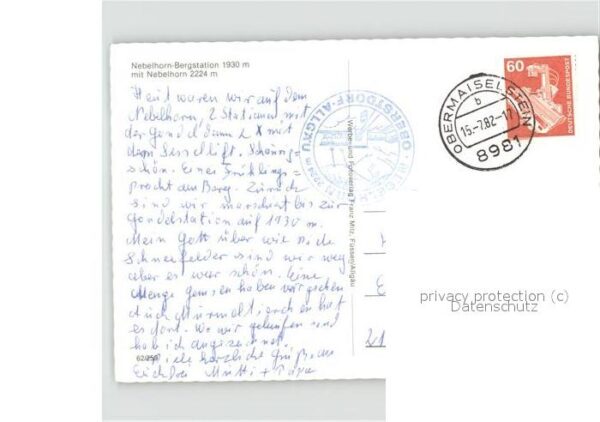 Nebelhorn-Bergstation 1930 m
mit Nebelhorn 2224 m
Heut waren wir auf dem
Nebelhorn, 2 Stationen mit
der Gondel dann 2 X mit
dem Sessellift.
schön. Eine Frühlings-
pracht am Berg. Zurück
sind wir marschiert bis zur
Gondelstation auf 1930 m.
Mein Gott über wie viele
Schneefelder sind wir weg
aber es war schön. Eine
Menge Gemsen haben wir gesehen
auch Murmeltierchen hat
es dort. Wo wir gelaufen sind
hab ich angezeichnet.
Viele herzliche Grüße an
Euch Drei Mutti + Papa
62/259
Werbe- und Fotoverlag Franz Milz, Füssen/Allgäu
OBERSTDORF-ALLGÄU
2224 m
OBERMAISELSTEIN
b
15.-7.82-17
8981
60
DEUTSCHE BUNDESPOST
1
3
21
privacy protection (c)
Datenschutz